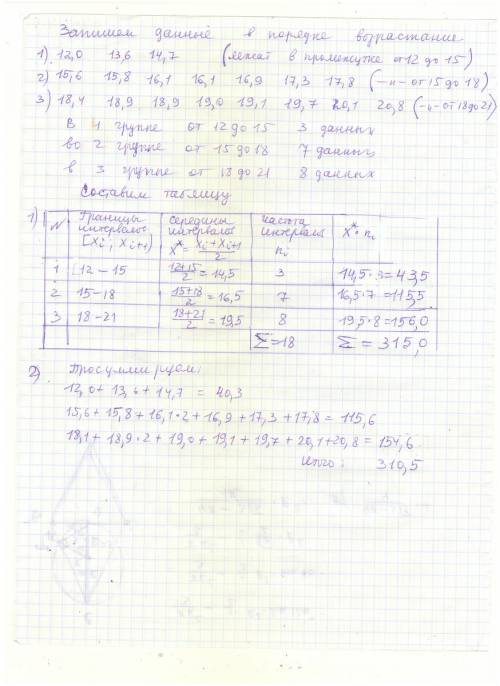 Запишем данные в порядке возрастание
1) 12,0 13,6 14,7 (лежат в промежутке от 12 до 15)
2) 15,6 15,8 16,1 16,1 16,9 17,3 17,8 (–"– от 15 до 18)
3) 18,1 18,9 18,9 19,0 19,1 19,7 20,1 20,8 (–"– от 18 до 21)
В 1 группе от 12 до 15 3 данных
во 2 группе от 15 до 18 7 данных
в 3 группе от 18 до 21 8 данных
Составим таблицу
1)
N Границы интервалы [Xi; Xi+1) Середины интервалов X* = (Xi+Xi+1)/2 частота интервалы ni X*·ni
1 12 – 15 (12+15)/2 = 14,5 3 14,5·3=43,5
2 15–18 (15+18)/2 = 16,5 7 16,5·7=115,5
3 18–21 (18+21)/2 = 19,5 8 19,5·8=156,0
Σ=18 Σ = 315,0
2) Просуммируем:
12,0+ 13,6 + 14,7 = 40,3
15,6 + 15,8 + 16,1·2 + 16,9 + 17,3 + 17,8 = 115,6
18,1 + 18,9·2 + 19,0 + 19,1 + 19,7 + 20,1+20,8 = 154,6
итого: 310,5